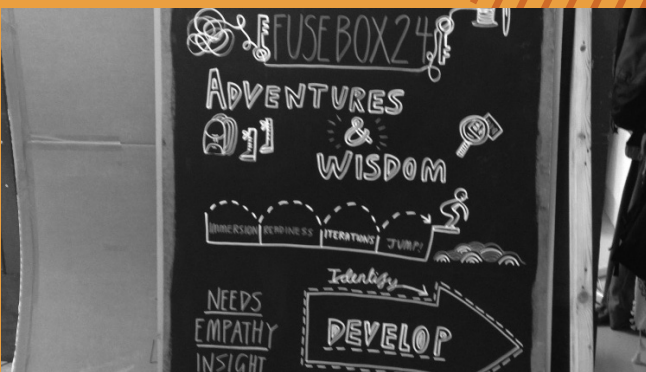 FUSEBOX24
ADVENTURES
&
WISDOM
IMMERSION READINESS ITERATIONS JUMP!
Identify
NEEDS
EMPATHY
INSIGHT
DEVELOP